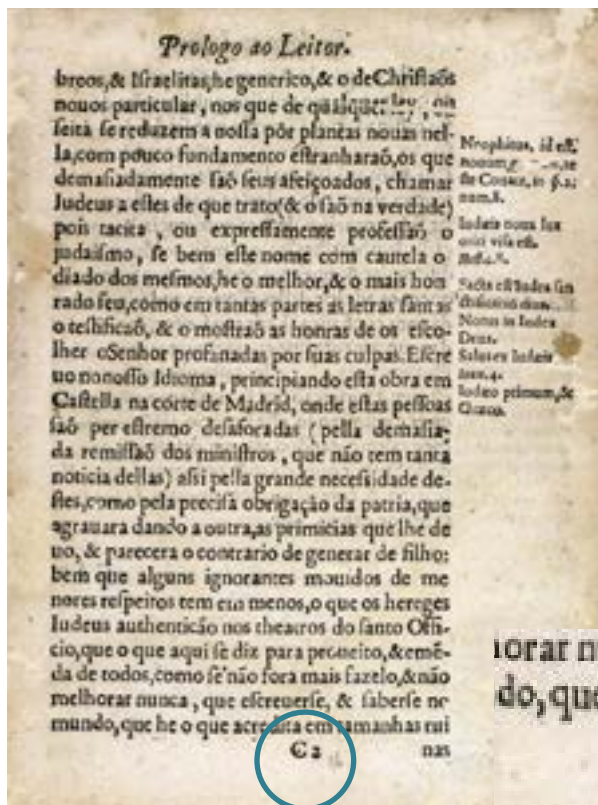 Prologo ao Leitor.
breos,& Israelitas,he generico,& o de Christaõs
nouos particular, nos que de qualquer ley, ou
seita se reduzem a nossa por plantas nouas nel-
la,com pouco fundamento estranharaõ,os que
demasiadamente saõ seus afeiçoados, chamar
Iudeus a estes de que trato(& o saõ na verdade)
pois tacita, ou expressamente professaõ o
judaismo, se bem este nome com cautela o
diado dos mesmos,he o melhor,& o mais hon
rado seu,como em tantas partes as letras santas
o testificaõ, & o mostraõ as honras de os esco-
lher o Senhor profanadas por suas culpas. Escre
uo no nosso Idioma, principiando esta obra em
Castella na corte de Madrid, onde estas pessoas
saõ per estremo desaforadas (pella demasia-
da remissaõ dos ministros, que não tem tanta
noticia dellas) assi pella grande necessidade de-
stes,como pela precisa obrigação da patria,que
agrauara dando a outra,as primicias que lhe de
uo, & parecera o contrario de generar de filho:
bem que alguns ignorantes mouidos de me
nores respeitos tem em menos,o que os hereges
Iudeus authenticão nos theatros do santo Offi-
cio,que o que aqui se diz para proueito,& emẽ-
da de todos,como se não fora mais fazelo,& não
melhorar nunca, que escreuerse, & saberse no
mundo,que he o que acredita em tamanhas rui
C2 nas
Neophitos, id est,
nouam
num.8.
Iudæis noua lux
oriri visa est.
Facta est Iudea san
Notus in Iudea
Deus.
Salus ex Iudæis
Ioan.4.
Iudæo primum,&
Græco.
orar n
do, que